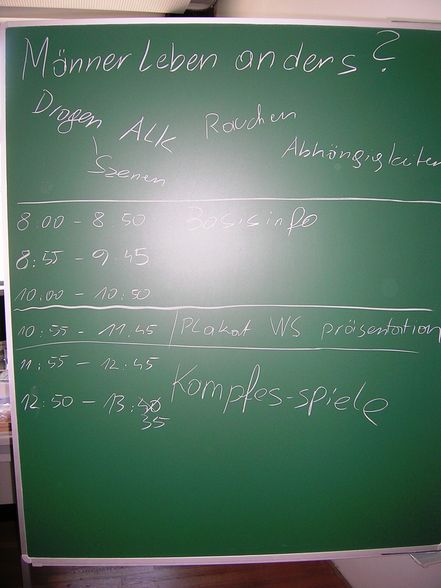 Männer Leben anders?
Drogen ALK Rauchen Abhängigkeiten
Szenen
8:00 - 8:50 Basisinfo
8:55 - 9:45
10:00 - 10:50
10:55 - 11:45 Plakat WS präsentation
11:55 - 12:45
Kampfes-spiele
12:50 - 13:30
35